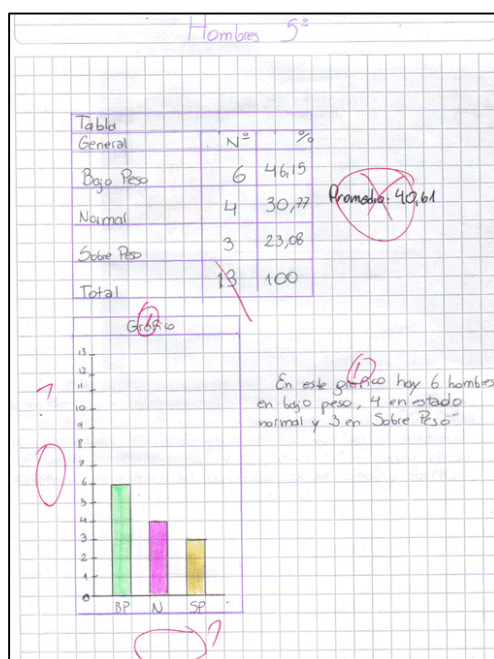 Hombres 5º
Tabla
General Nº %
Bajo Peso 6 46,15
Normal 4 30,77
Promedio: 40,61
Sobre Peso 3 23,08
Total 13 100
Grafico
13
12
11
10
9
8
7
6
5
4
3
2
1
0
BP N SP
?
?
En este grafico hay 6 hombres
en bajo peso, 4 en estado
normal y 3 en Sobre Peso